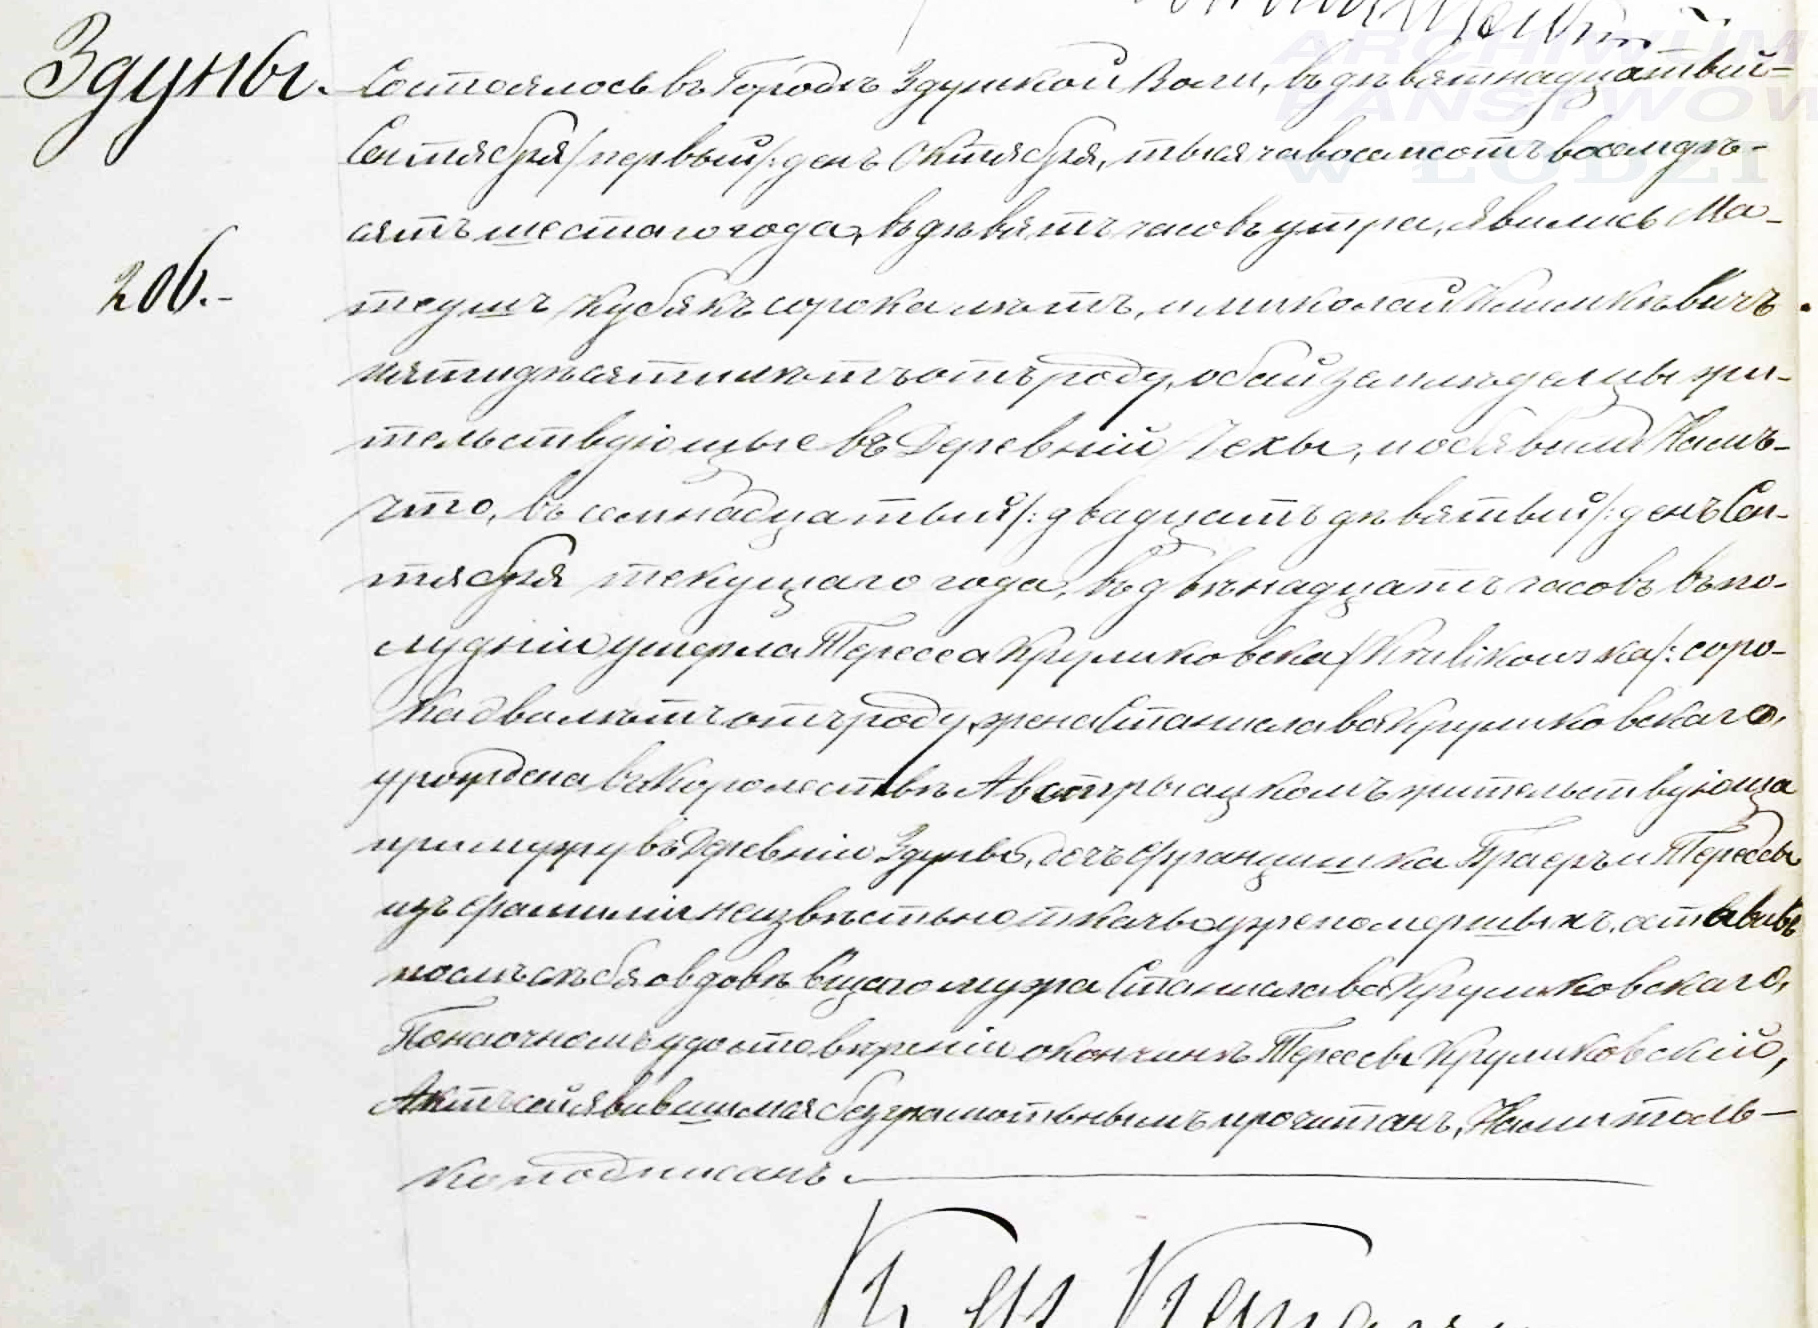 Здуны.
206.-
Состоялось въ Городѣ Здунской Воли, въ девятнадцатый
Сентября /первый/: день Октября, тысяча восемсотъ восемде-
сятъ шестаго года, въ девять часовъ утра, явились Ма-
теушъ Кубякъ сорока лѣтъ, и Миколай Климкевичъ
пятидесяти лѣтъ отъ роду, обай земледелцы жи-
тельствующые въ Деревнiй Чехы, и объявили Намъ-
что, въ семнадцатый/: двадцать девятый/: день Сен-
тября текущаго года, въ двенадцать часовъ въ по-
луднiи умерла Тересса Круликовска /Krulikowska/: соро-
ка два лѣтъ отъ роду, жена Станислава Круликовскаго,
урождена въ Королествѣ Австрыацкомъ жительствующа
при мужу въ Деревнiи Здуны, дочъ Францишка Браеръ и Терессы
изъ фамилiи неизвестьно ткачьо уже помершыхъ. оставивъ
послѣ себя овдовевщаго мужа Станислава Круликовскаго,
По наочномъ удостоверенiи окончинѣ Терессы Круликовскiй,
Актъ сей явившимся безграмотьнымъ прочитанъ, Нами толь-
ко подписанъ.